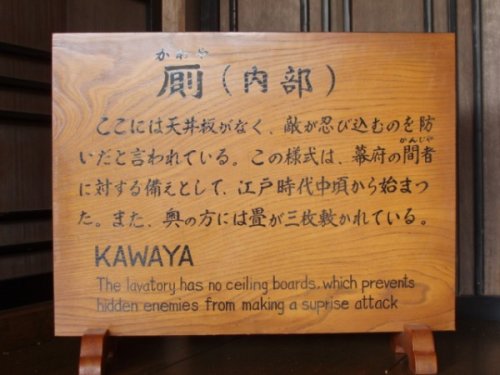 かわや
厠(内部)
ここには天井板がなく、敵が忍び込むのを防
いだと言われている。この様式は、幕府の間者
かんじゃ
に対する備えとして、江戸時代中頃から始まっ
た。また、奥の方には畳が三枚敷かれている。
KAWAYA
The lavatory has no ceiling boards, which prevents
hidden enemies from making a suprise attack